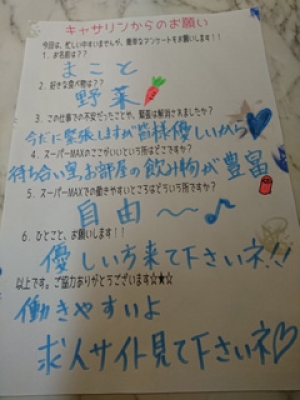 キャサリンからのお願い
今回は、忙しい中すいませんが、簡単なアンケートをお願いします！！
1．お名前は？？
まこと
2．好きな食べ物は？？
野菜
3．この仕事での不安だったことや、緊張は解消されましたか？
今だに緊張しますが皆様優しいから
4．スーパーMAXのここがいいという所はどこですか？
待ち合い室、お部屋の飲み物が豊富
5．スーパーMAXでの働きやすいところはどういう所ですか？
自由～♪
6．ひとこと、お願いします！！
優しい方来て下さいネ!!
以上です。ご協力ありがとうございます☆★☆
働きやすいよ
求人サイト見て下さいネ♡